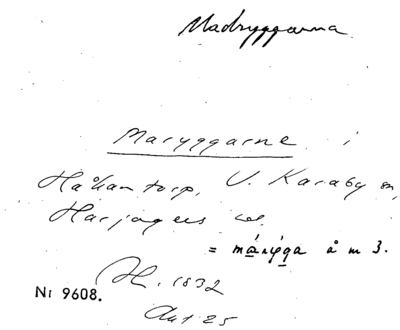 Madryggarna
Maryggarne i
Håkantorp, V. Karaby sn,
Harjagers hd.
å m 3.
H. 1832
Nr 9608.
Akt 25